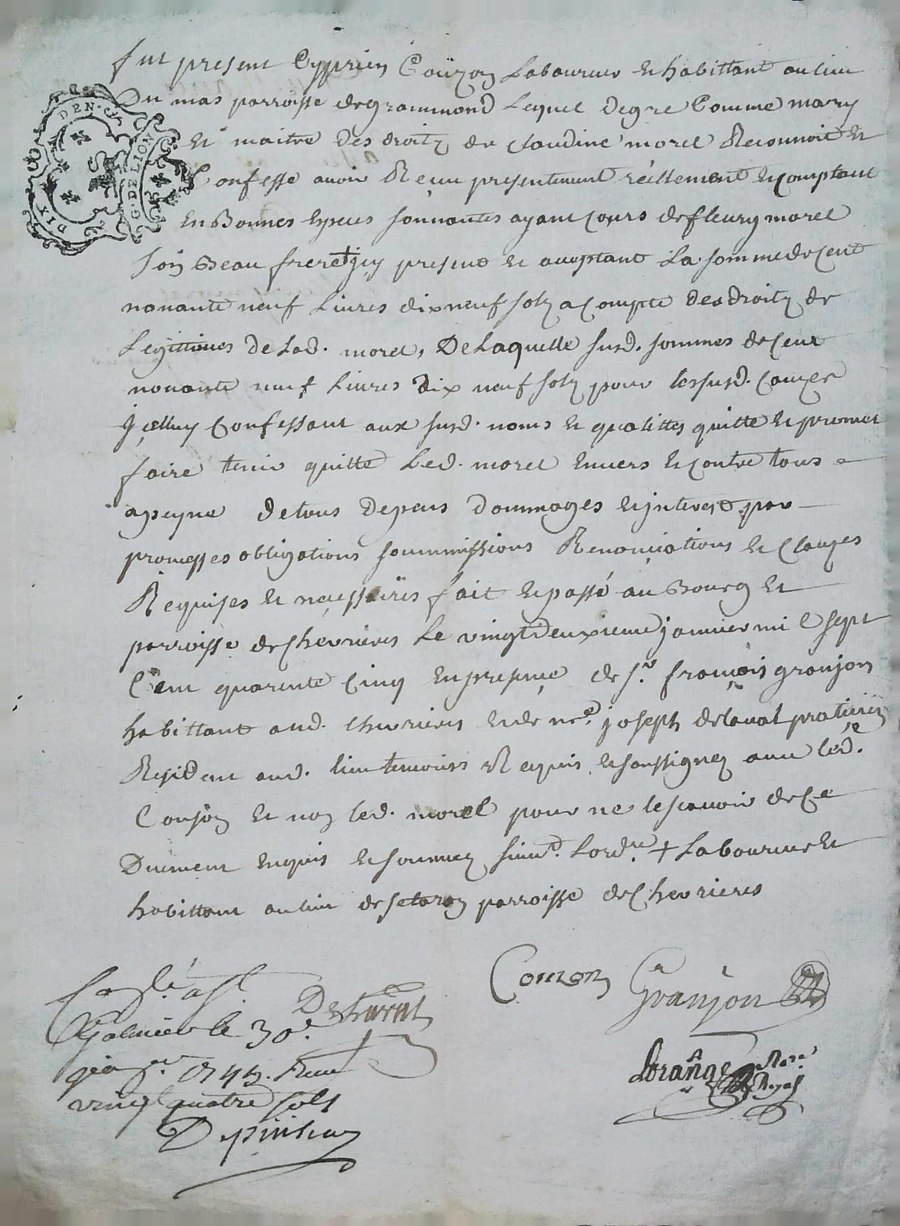 fut present Cyprien Couzon Laboureur et habittant au lieu
Du mas parroisse de grammond Lequel degre Comme mary
et maitre des droitz de claudine morel Reconnoit et
Confesse avoir Receu presentement réellement et comptant
en Bonnes especes sonnantes ayant cours de fleury morel
son Beau frere + jcy present et aceptant La somme de Cent
nonante neuf Livres dix neuf solz a compte des droitz de
Legittimes de Lad. morel, De Laquelle susd. sommes de Cent
nonante neuf Livres dix neuf solz pour les susd. Causes
jcelluy Confessant aux susd. noms et qualittes quitte et promet
faire tenir quitte Led. morel envers et contre tous
apeyne de tous depens dommages et jnterest par
promesses obligations soummissions Renonciations et Clauses
Requises et nécessaires fait et passé au Bourg et
parroisse de Chevrieres Le vingtdeuxieme janvier mil sept
Cent quarente Cinq en presence de Sr. françois granjon
habittant aud. chevrieres et de me. joseph delaval praticien
Resident aud. lieu temoins Requis et soussignez avec led.
Couzon et non led. morel pour ne le scavoir de Ce
Duement enquis et sommez + Laboureur et
habittant au lieu de parroisse de Chevrieres
DIX DEN.
G. DE LION
Couzon
Granjon
Delaval
Lorange no.re Royal
Conslé a St.
Galmier le 30e.
janer. 1745. Receu
vingt quatre sols